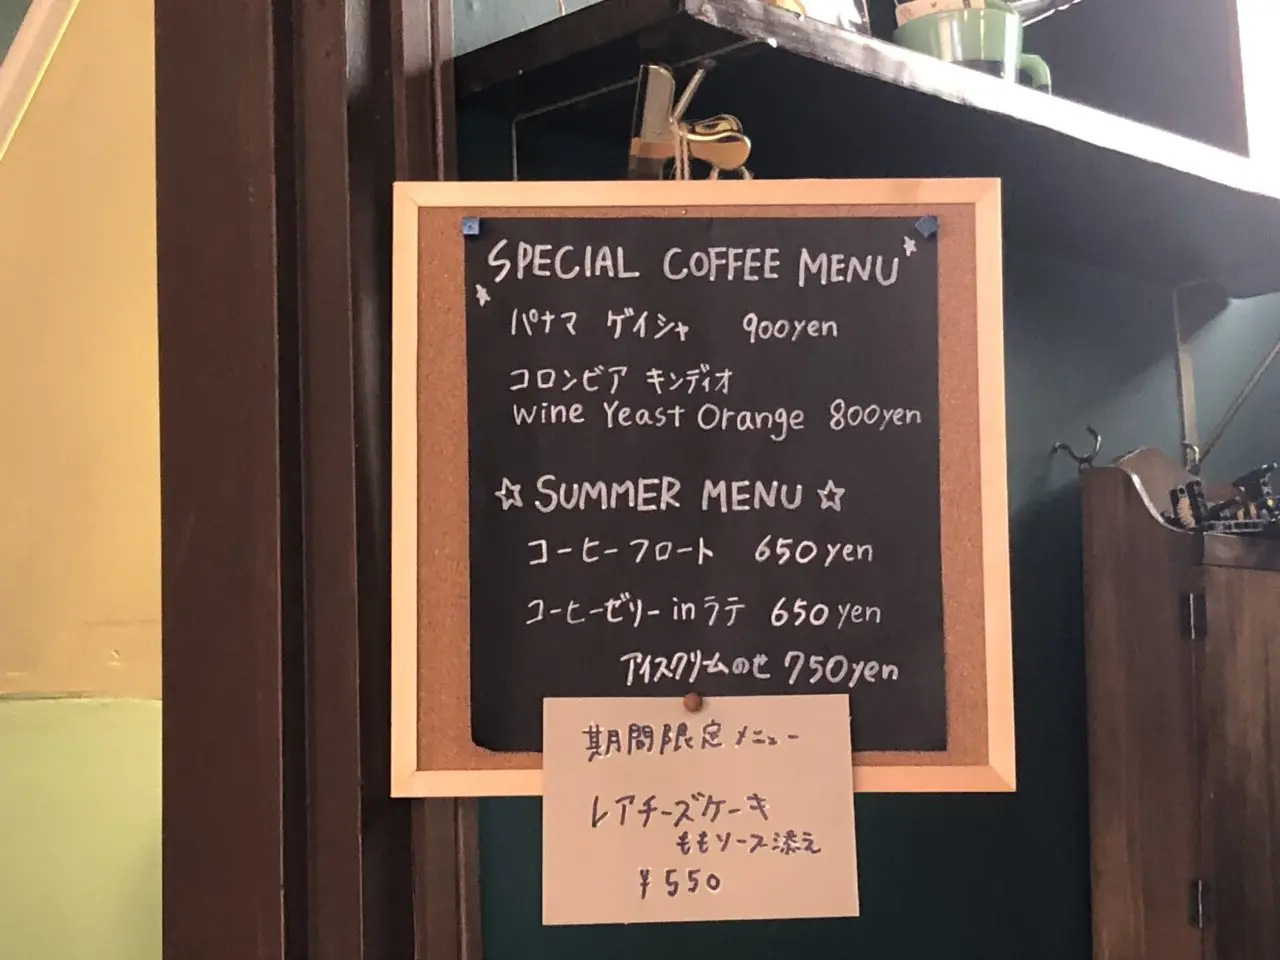 SPECIAL COFFEE MENU
パナマ ゲイシャ 900yen
コロンビア キンディオ
Wine Yeast Orange 800yen
☆ SUMMER MENU ☆
コーヒーフロート 650yen
コーヒーゼリー in ラテ 650yen
アイスクリームのせ 750yen
期間限定メニュー
レアチーズケーキ
ももソース添え
¥550